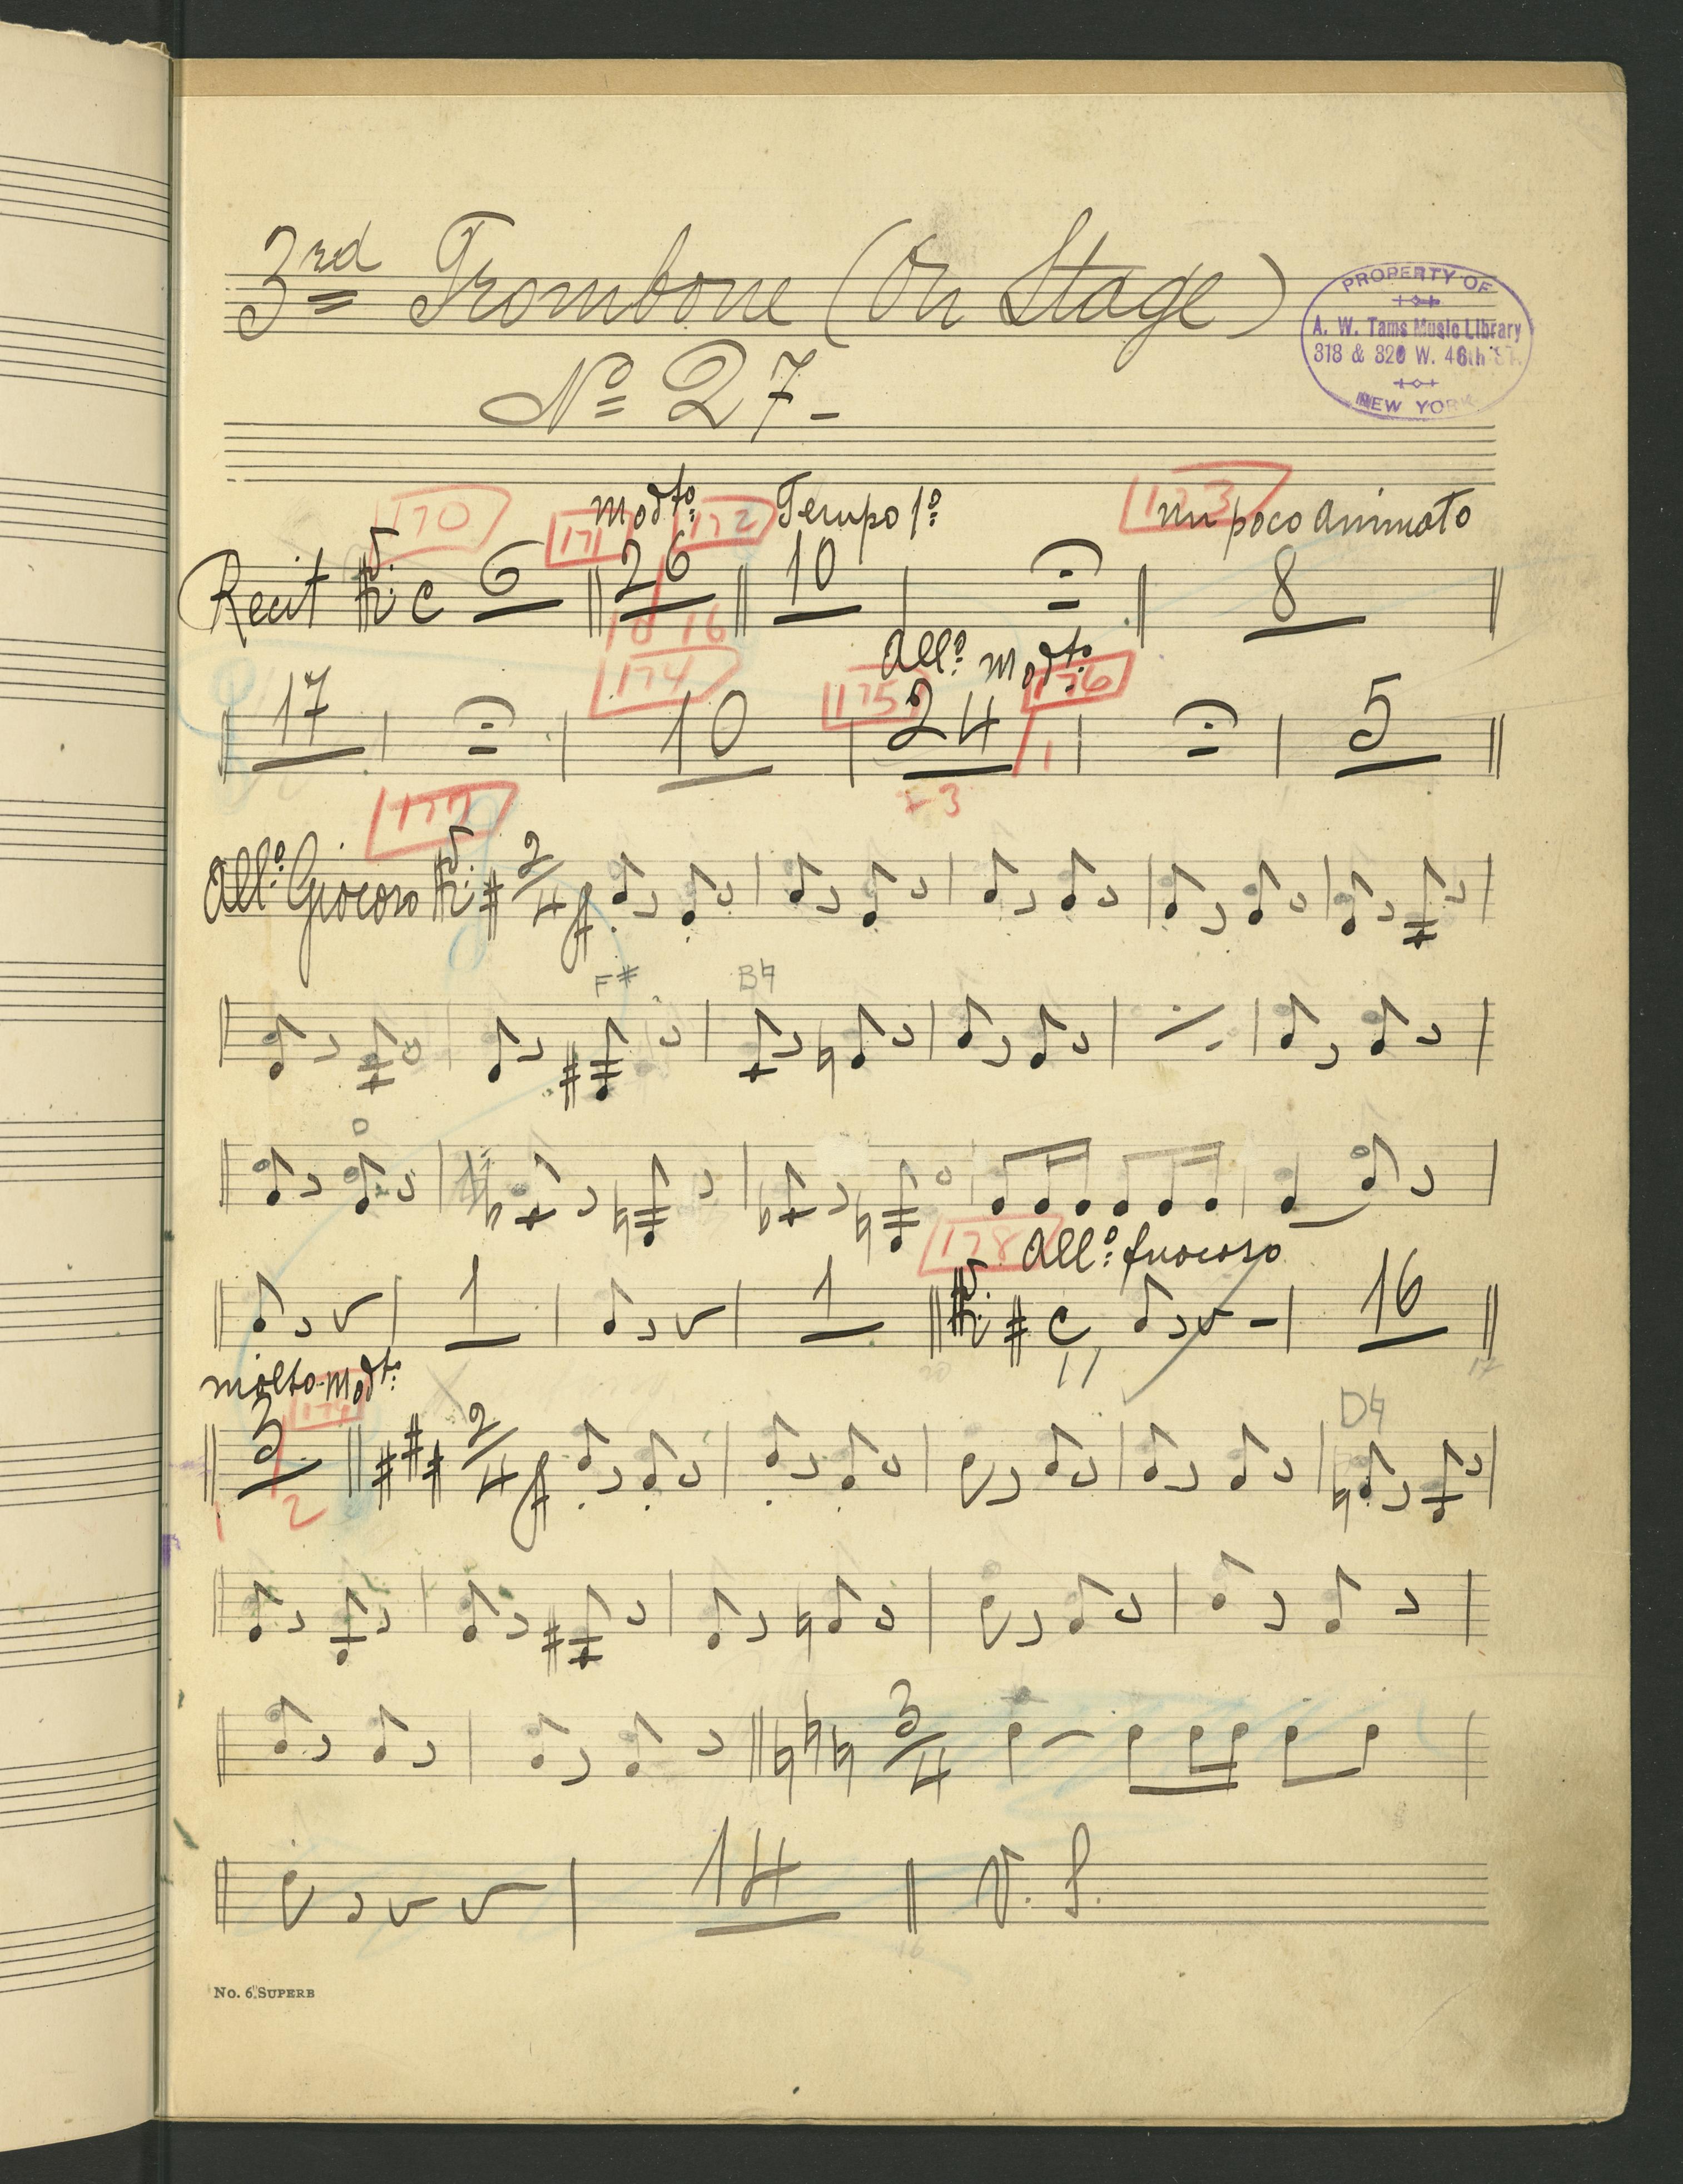 3rd Trombone (On Stage)
No 27-
PROPERTY OF
A. W. Tams Music Library
318 & 320 W. 46th ST.
NEW YORK
170 171 Modto 172 Tempo 1o 173 un poco animato
Recit C 6 26 10 8
10 16
174 Allo Modto
17 10 175 24 176 5
1
23
177
Allo Giocoso 2/4 f
F# B♮
D
178 Allo fuocoso
1 1 C 16
11 17
molto Modto
3 179 2/4 f D♮
1 2
3/4
14 V. S.
16
No. 6. SUPERB